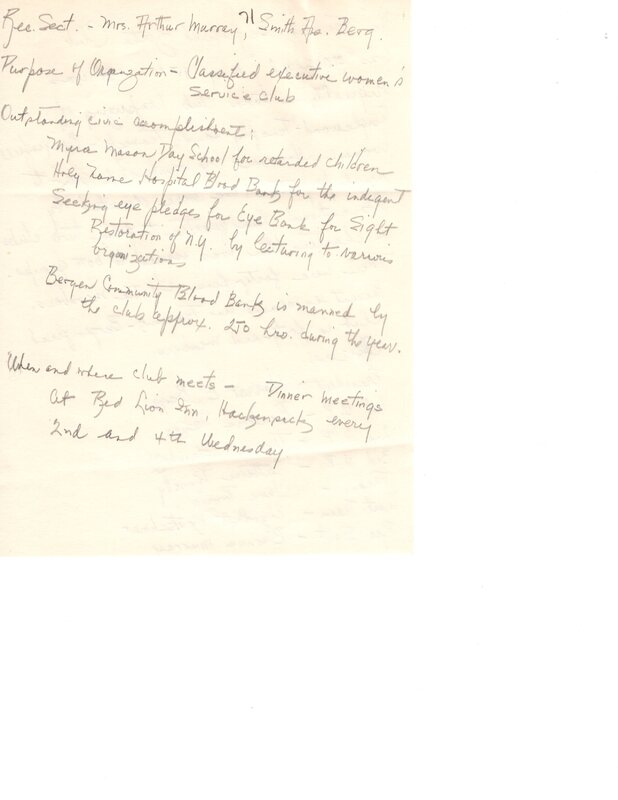 Rec. Sect. - Mrs. Arthur Murray, 71 Smith Ave. Berg.
Purpose of Organization - Classified executive women's
service club
Outstanding civic accomplishment:
Myra Mason Day School for retarded children
Holy Name Hospital Blood Bank for the indigent
Seeking eye pledges for Eye Bank for Sight
Restoration of N.Y. by lecturing to various
organizations
Bergen Community Blood Bank is manned by
the club approx. 250 hrs. during the year.
When and where club meets - Dinner meetings
at Red Lion Inn, Hackensack, every
2nd and 4th Wednesday